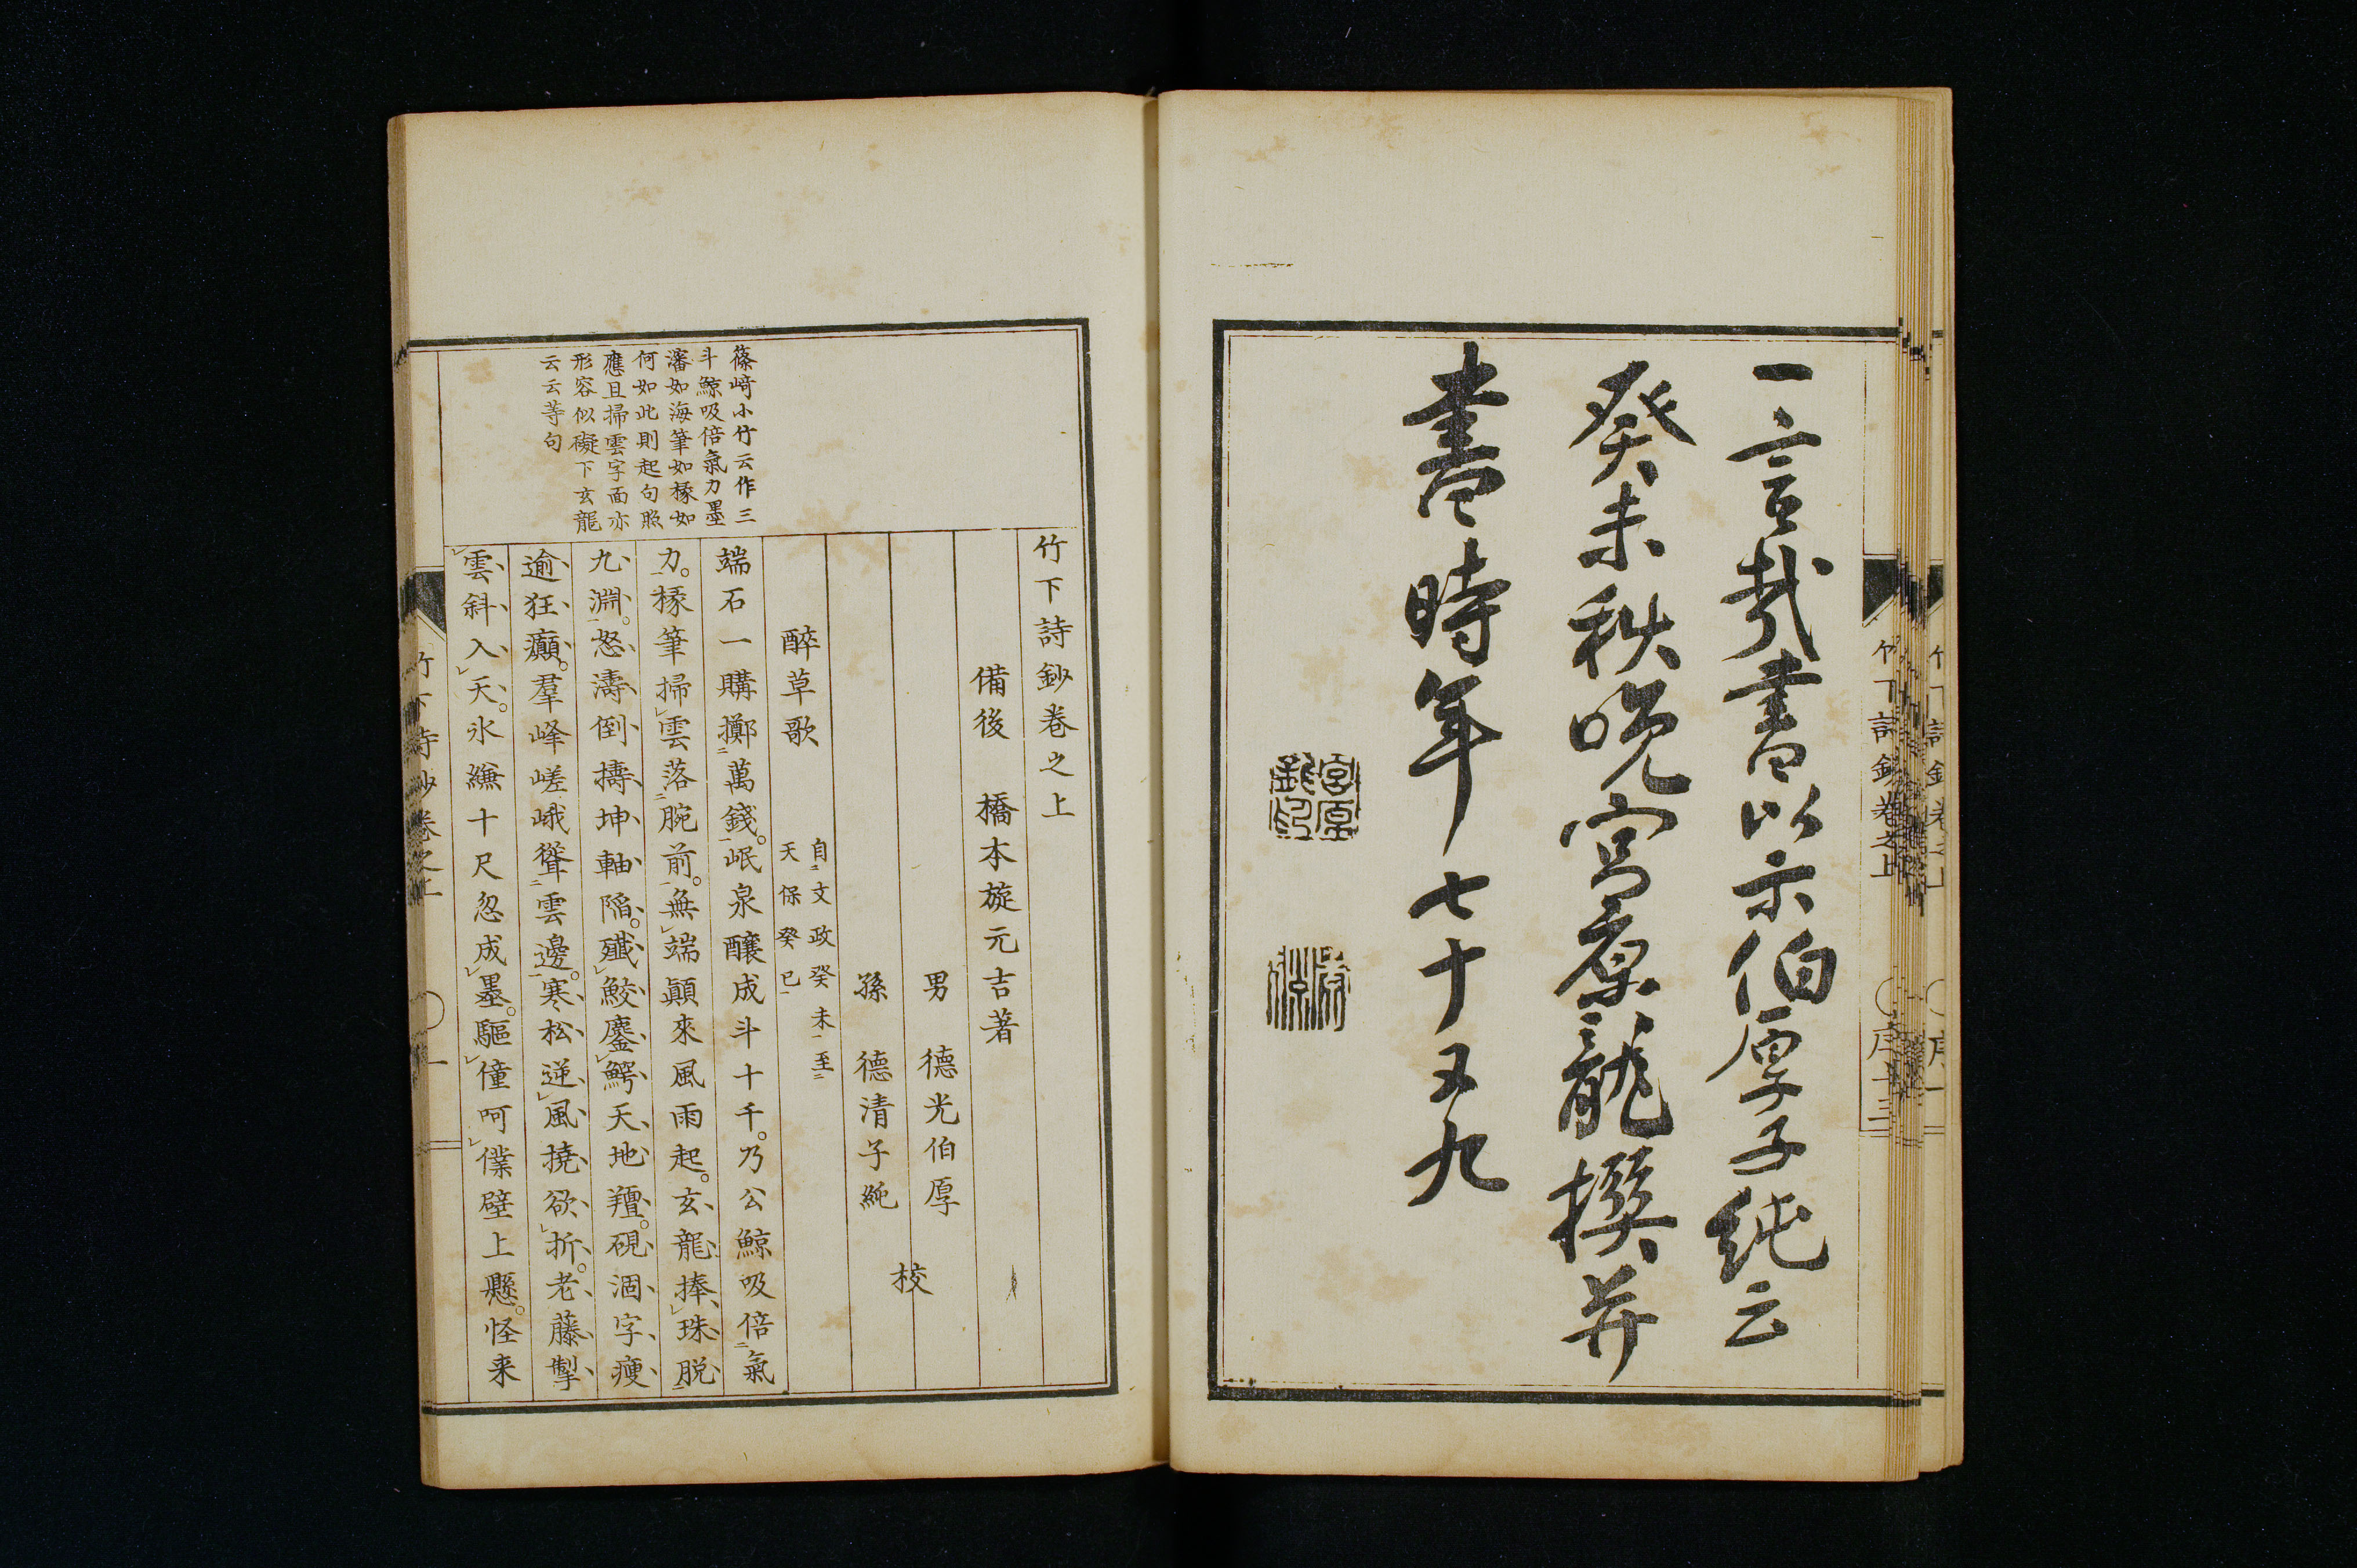 一言哉書以示伯厚子純云
癸未秋晩宮原龍撰并
書時年七十又九
竹下詩鈔卷之上
備後 橋本旋元吉著
男 德光伯厚
孫 德清子純
校
醉草歌
自文政癸未至
天保癸巳
端石一購擲萬錢。岷泉釀成斗十千。乃公鯨吸倍氣
力。椽筆掃雲落腕前。無端顚來風雨起。玄龍捧珠脱
九淵。怒濤倒擣坤軸陷。殱鮫鏖鰐天地羶。硯涸字瘦
逾狂癲。羣峰嵯峨聳雲邊。寒松逆風撓欲折。老藤掣
雲斜入天。氷縑十尺忽成墨。驅僮呵僕壁上懸。怪来
篠﨑小竹云作三
斗鯨吸倍氣力墨
瀋如海筆如椽如
何如此則起句照
應且掃雲字面亦
形容似礙下玄龍
云云等句
竹下詩鈔卷之上 一